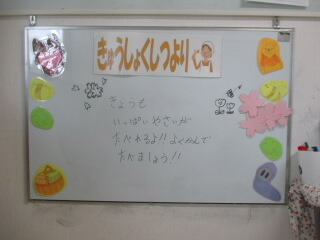 きゅうしょくしつより
きょうも
いっぱい やさいが
たべれるよ!! よくかんで
たべましょう!!